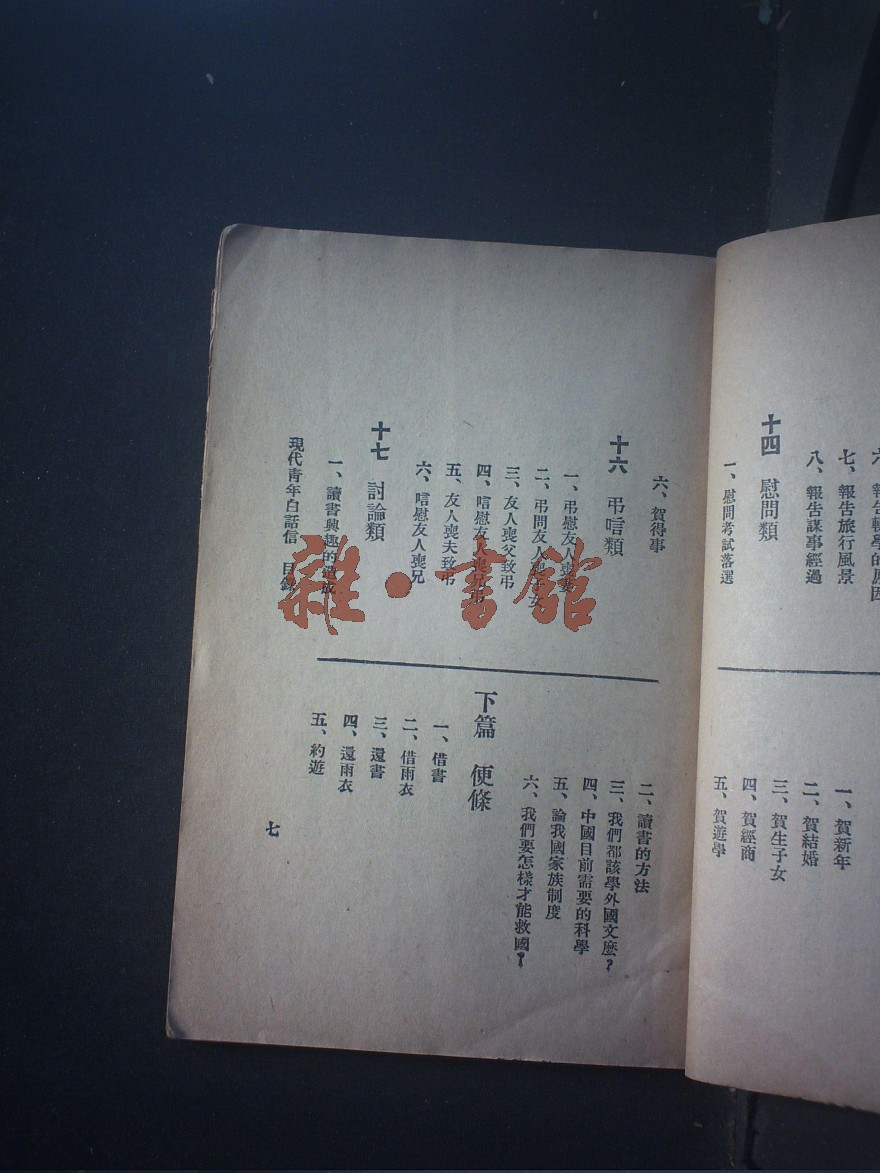 七、報告旅行風景
八、報告謀事經過
十四 慰問類
一、慰問考試落選
一、賀新年
二、賀結婚
三、賀生子女
四、賀經商
五、賀遊學
六、賀得事
十六 弔唁類
一、弔慰友人喪妻
二、弔問友人喪子女
三、友人喪父致弔
四、唁慰友人喪兄弟
五、友人喪夫致弔
六、唁慰友人喪兄
十七 討論類
一、讀書興趣的造成
二、讀書的方法
三、我們都該學外國文麼?
四、中國目前需要的科學
五、論我國家族制度
六、我們要怎樣才能救國?
下篇 便條
一、借書
二、借雨衣
三、還書
四、還雨衣
五、約遊
現代青年白話信 目錄
七
雜·書館